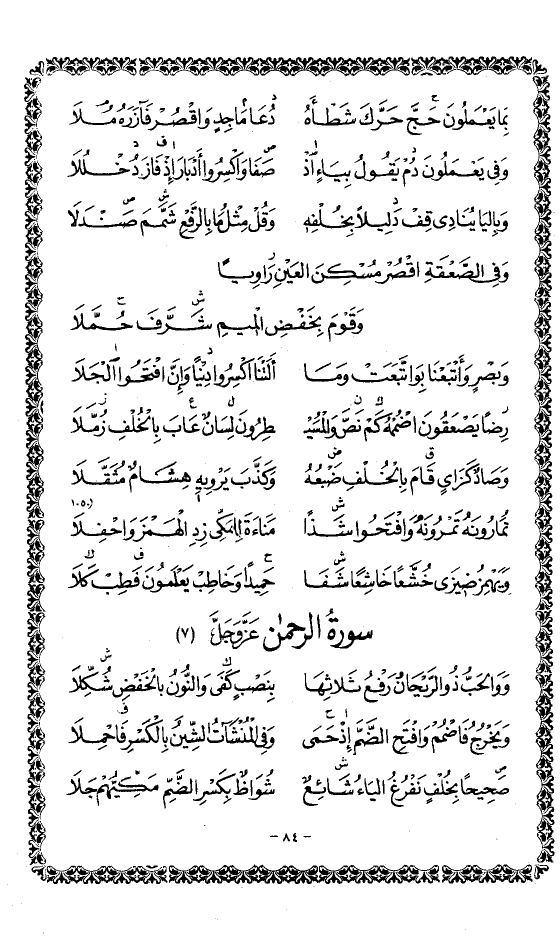 بِمَا يَعْمَلُونَ حَجَّ حَرَّكَ شَطْأَهُ دُعَا مَاجِدٍ وَاقْصُرْ فَآزَرَهُ مُلَا
وَفِي يَعْمَلُونَ دُمْ يَقُولُ بِيَاءٍ اذْ صَفَا وَاكْسِرُوا أَدْبَارَ إِذْ فَازَ دُخْلُلَا
وَبِالْيَا يُنَادِي قِفْ دَلِيلًا بِخُلْفِهِ وَقُلْ مِثْلُ مَا بِالرَّفْعِ شَمَّمَ صَنْدَلَا
وَفِي الصَّعْقَةِ اقْصُرْ مُسْكِنَ الْعَيْنِ رَاوِيًا
وَقَوْمَ بِخَفْضِ الْمِيمِ شَرَّفَ حُمَّلَا
وَبَصْرٍ وَأَتْبَعْنَا بِوَاتَّبَعَتْ وَمَا أَلَتْنَا اكْسِرُوا دِنْيًا وَإِنَّ افْتَحُوا الْجَلَا
رِضًا يَصْعَقُونَ اضْمُمْهُ كَمْ نَصَّ وَالْمُسَيْ طِرُونَ لِسَانٌ عَابَ بِالْخُلْفِ زُمَّلَا
وَصَادٌ كَزَايٍ قَامَ بِالْخُلْفِ ضَبْعُهُ وَكَذَّبَ يَرْوِيهِ هِشَامٌ مُثَقَّلَا
تُمَارُونَهُ تَمْرُونَهُ وَافْتَحُوا شَذًا مَنَاءَةَ لِلْمَكِّي زِدِ الْهَمْزَ وَاحْفِلَا (١٠٥٠
وَيَهْمِزُ ضِيزَى خُشَّعًا خَاشِعًا شَفَا حَمِيدًا وَخَاطِبْ يَعْلَمُونَ فَطِبْ كَلَا
سورة الرحمن عَزَّ وَجَلَّ (٧)
وَوَالْحَبُّ ذُو الرَّيْحَانُ رَفْعُ ثَلَاثِهَا بِنَصْبٍ كَفَى وَالنُّونُ بِالْخَفْضِ شُكِّلَا
وَيَخْرُجُ فَاضْمُمْ وَافْتَحِ الضَّمَّ إِذْ حَمَى وَفِي الْمُنْشَآتُ الشِّينُ بِالْكَسْرِ فَاحْمِلَا
صَحِيحًا بِخُلْفٍ نَفْرُغُ الْيَاءُ شَائِعٌ شُوَاظٌ بِكَسْرِ الضَّمِّ مَكِّيُّهُمْ جَلَا
- ٨٤ -